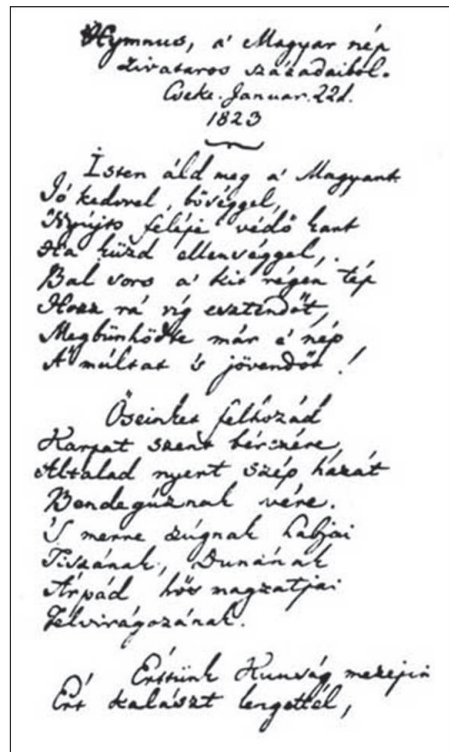 Hymnus, a' Magyar nép
zivataros századaiból.
Cseke. Januar. 22d.
1823
Isten áld meg a' Magyart
Jó kedvvel, bőséggel,
Nyújts feléje védő kart
Ha küzd ellenséggel,
Bal sors a' kit régen tép
Hozz rá víg esztendőt,
Megbűnhödte már e' nép
A' múltat 's jövendőt!
Őseinket felhozád
Kárpát szent bérczére,
Általad nyert szép hazát
Bendegúznak vére.
'S merre zúgnak habjai
Tiszának, Dunának
Árpád hős magzatjai
Felvirágozának.
Értünk Kunság mezejin
Ért kalászt lengettél,